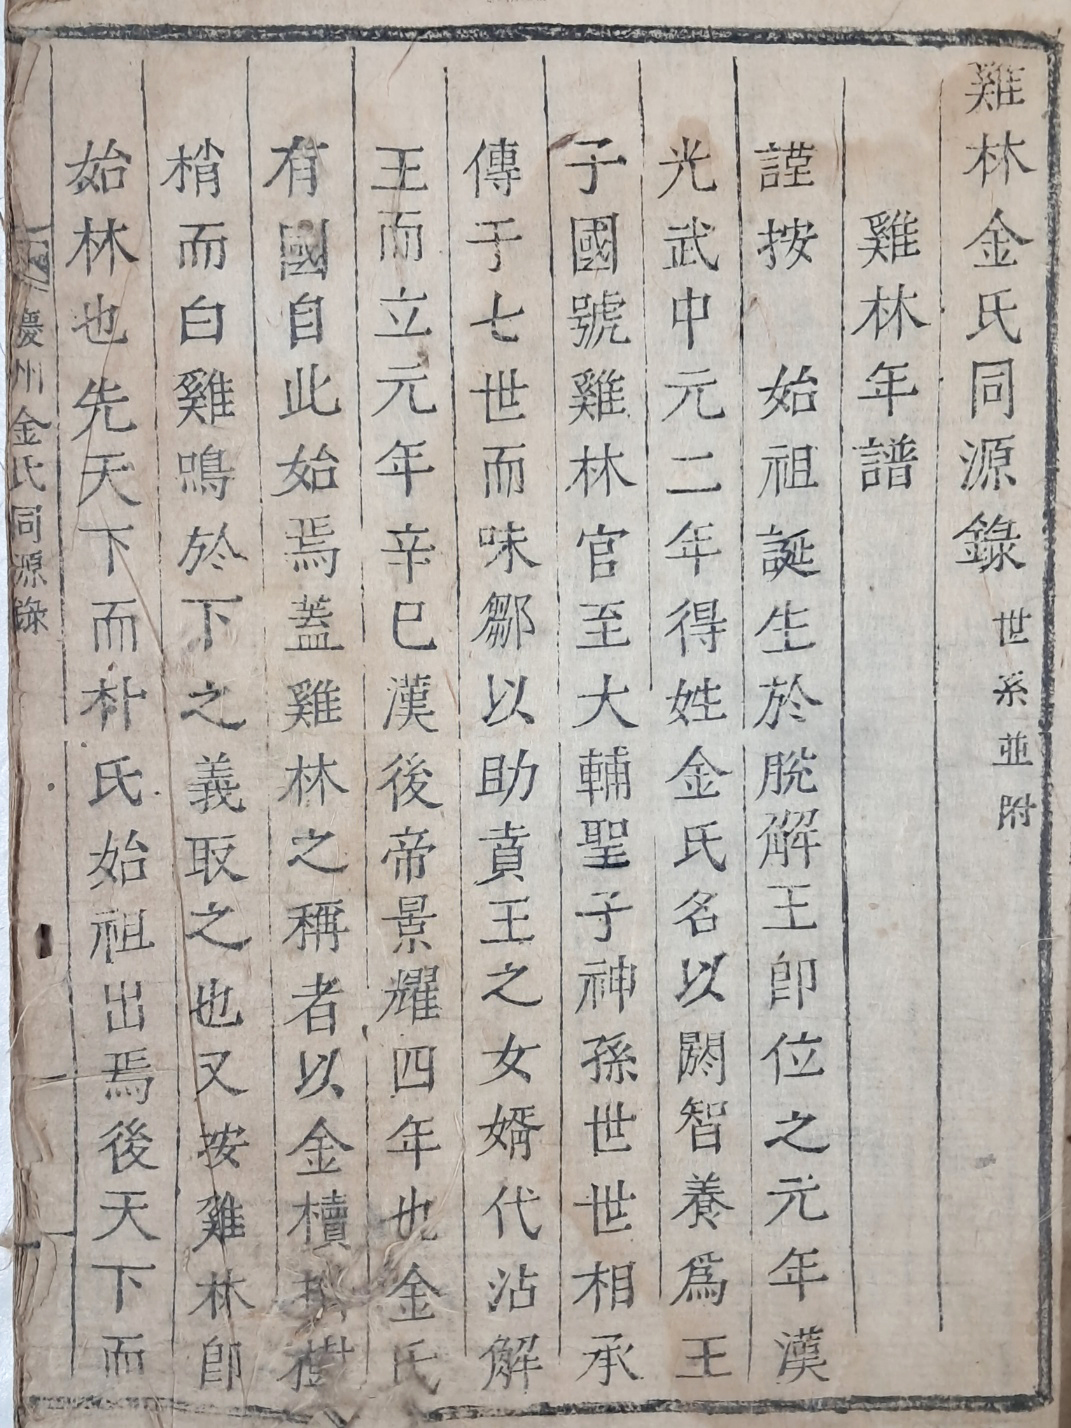 雞林金氏同源錄 世系並附
雞林年譜
謹按 始祖誕生於脫解王卽位之元年漢
光武中元二年得姓金氏名以閼智養爲王
子國號雞林官至大輔聖子神孫世世相承
傳于七世而味鄒以助賁王之女婿代沾解
王而立元年辛巳漢後帝景耀四年也金氏
有國自此始焉蓋雞林之稱者以金櫝掛樹
梢而白雞鳴於下之義取之也又按雞林卽
始林也先天下而朴氏始祖出焉後天下而
慶州金氏同源錄